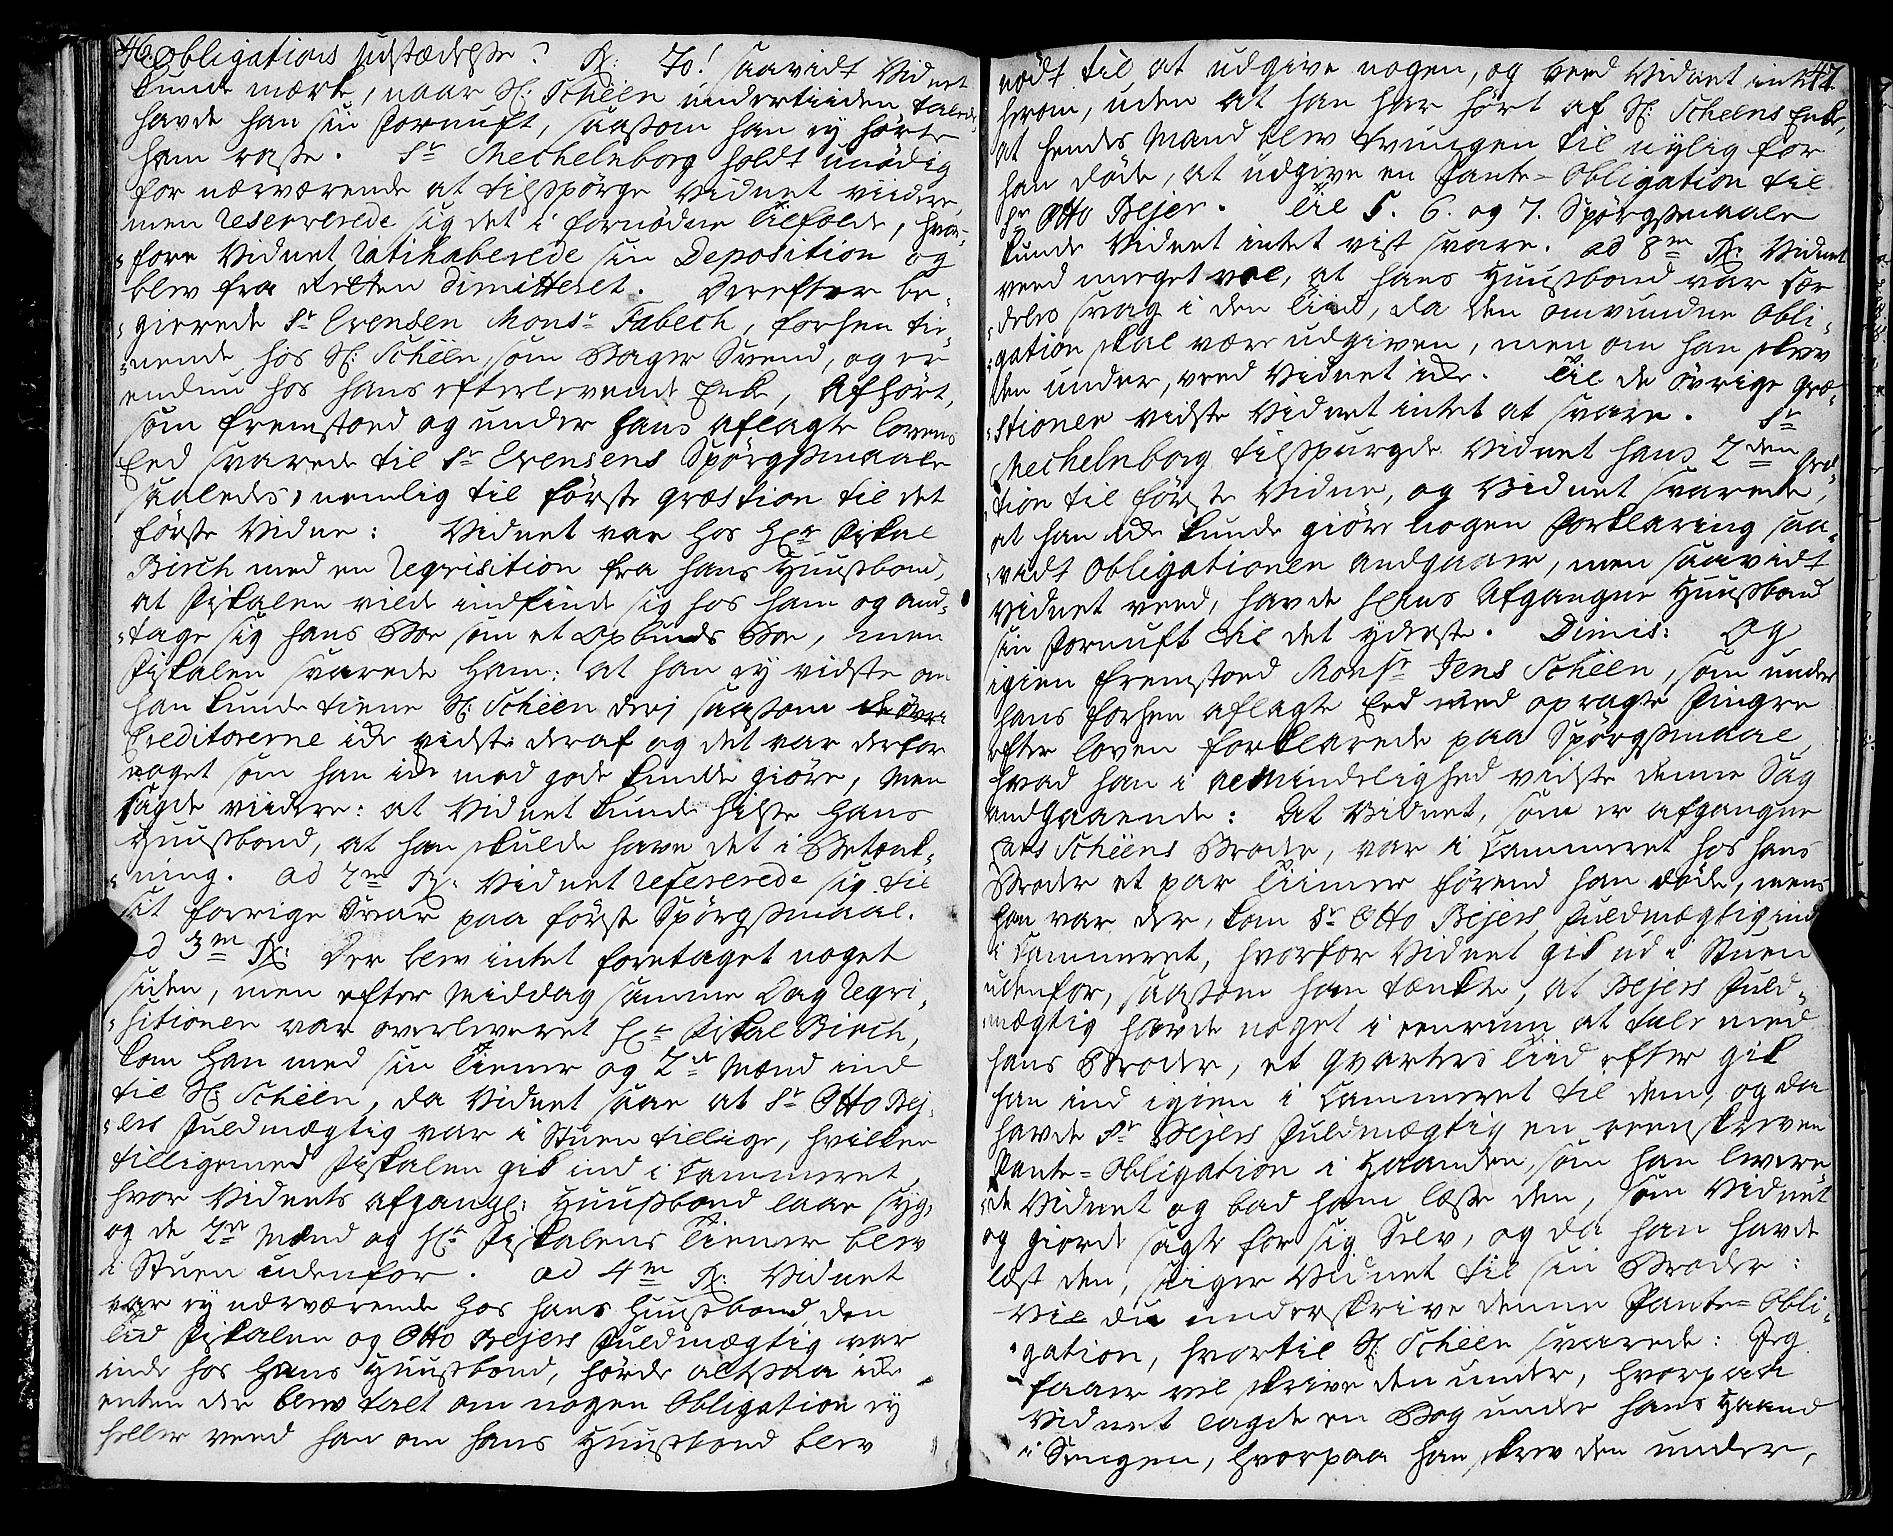 46. obligations udstædelse? Rx: Jo! saavidt Vidnet
kunde mærke, naar Sl: Schëen undertiiden talede,
havde han sin Fornuft, saasom han ey hørte
ham rase. Sr Mechelnborg holdt unødig
for nærværende at tilspørge Vidnet viidere,
men reserverede sig det i fornødne Tilfælde, hvor-
fore Vidnet ratihaberede sin Deposition og
blev fra Retten dimitteret. Derefter be-
gierede Sr Evensen Monsr Fabech, forhen tie-
nende hos Sl: Schëen, som Bager Svend, og er
endnu hos hans efterlevende Enke, Afhørt,
som fremstoed og under hans aflagte lovens
Eed svarede til Sr Evensens Spørgsmaale
saaledes, nemlig til første qvæstion til det
første Vidne: Vidnet var hos Hr Fiskal
Birch med en Reqvisition fra hans Huusbond,
at Fiskalen vilde indfinde sig hos ham og and-
tage sig hans Boe som et Opbuds Boe, men
Fiskalen svarede ham: at han ey vidste om
han kunde tiene Sl: Schëen derj saasom de øvr:
Creditorerne ike vidste deraf og det var derfor
noget som han ike med gode kunde giøre, men
sagde viidere: at Vidnet kunde hilse hans
Huusbond, at han skulde have det i Betænk-
ning. ad 2m Rx: Vidnet refererede sig til
sit forrige Svar paa første Spørgsmaal.
ad 3m Rx: Der blev intet foretaget noget
siden, men efter Middag samme Dag Reqvi-
sitionen var overleveret Hr Fiskal Birch,
kom han med sin Tiener og 2de Mænd ind
til Sl: Schëen, da Vidnet saae at Sr Otto Bej-
ers Fuldmægtig var i Stuen tillige, hvilken
tilligemed Fiskalen gik ind i Kammeret,
hvor Vidnets afgangl: Huusbond laae syg,
og de 2de Mænd og Hr Fiskalens Tiener blev
i Stuen udenfor. ad 4m Rx: Vidnet
var ey nærværende hos hans Huusbond, den
Tid Fiskalen og Otto Bejers Fuldmægtig var
inde hos hans Huusbond, hørde altsaa ike
enten der blev talt om nogen Obligation ey
heller veed han om hans Huusbond blev
47
nødt til at udgive nogen, og veed Vidnet intet
herom, uden at han har hørt af Sl: Schëens Enke,
at hendes Mand blev tvungen til nylig før
han døde, at udgive en Pante-Obligation til
Sr Otto Bejer. Til 5. 6. og 7. Spørgsmaale
kunde Vidnet intet vist svare. ad 8m Rx: Vidnet
veed meget vel, at hans Huusbond var sær-
deles svag i den Tiid, da den omvundne Obli-
gation skal være udgiven, men om han skrev
den under, veed Vidnet ike. Til de øvrige qvæ-
stioner vidste Vidnet intet at svare. Sr
Mechelnborg tilspurgde Vidnet hans 2den qvæ-
tion til første Vidne, og Vidnet svarede,
at han ike kunde giøre nogen Forklaring saa-
vidt Obligationen andgaaer, men saavidt
Vidnet veed, havde hans Afgangne Huusbond
sin Fornuft til det yderste. Dimis: Og
igien fremstoed Monsr Jens Schëen, som under
hans forhen aflagte Eed med opragte Fingre
efter loven forklarede paa Spørgsmaal,
hvad han i almindelighed vidste denne Sag
andgaaende: At Vidnet, som er afgangne
Lars Schëens Broder, var i Kammeret hos hans
Broder et par Tiimer førend han døde, mens
han var der, kom Sr Otto Bejers Fuldmægtig ind
i Kammeret, hvorfor Vidnet gik ud i Stuen
udenfor, saasom han tænkte, at Bejers Fuld-
mægtig havde noget i eenrum at tale med
hans Broder, et qvarters Tiid efter gik
han ind igien i Kammeret til dem, og da
havde Sr Bejers Fuldmægtig en reenskreven
Pante-Obligation i Haanden, som han levere-
de Vidnet og bad ham læse den, som Vidnet
og giorde sagte for sig Selv, og da han havde
læst den, siiger Vidnet til sin Broder:
Vil du underskrive denne Pante-Obli-
gation, hvortil Sl: Schëen svarede: Jeg
faaer vel skrive den under, hvorpaa
Vidnet lagde en Bog under hans Haand
i Sengen, hvorpaa han skrev den under,